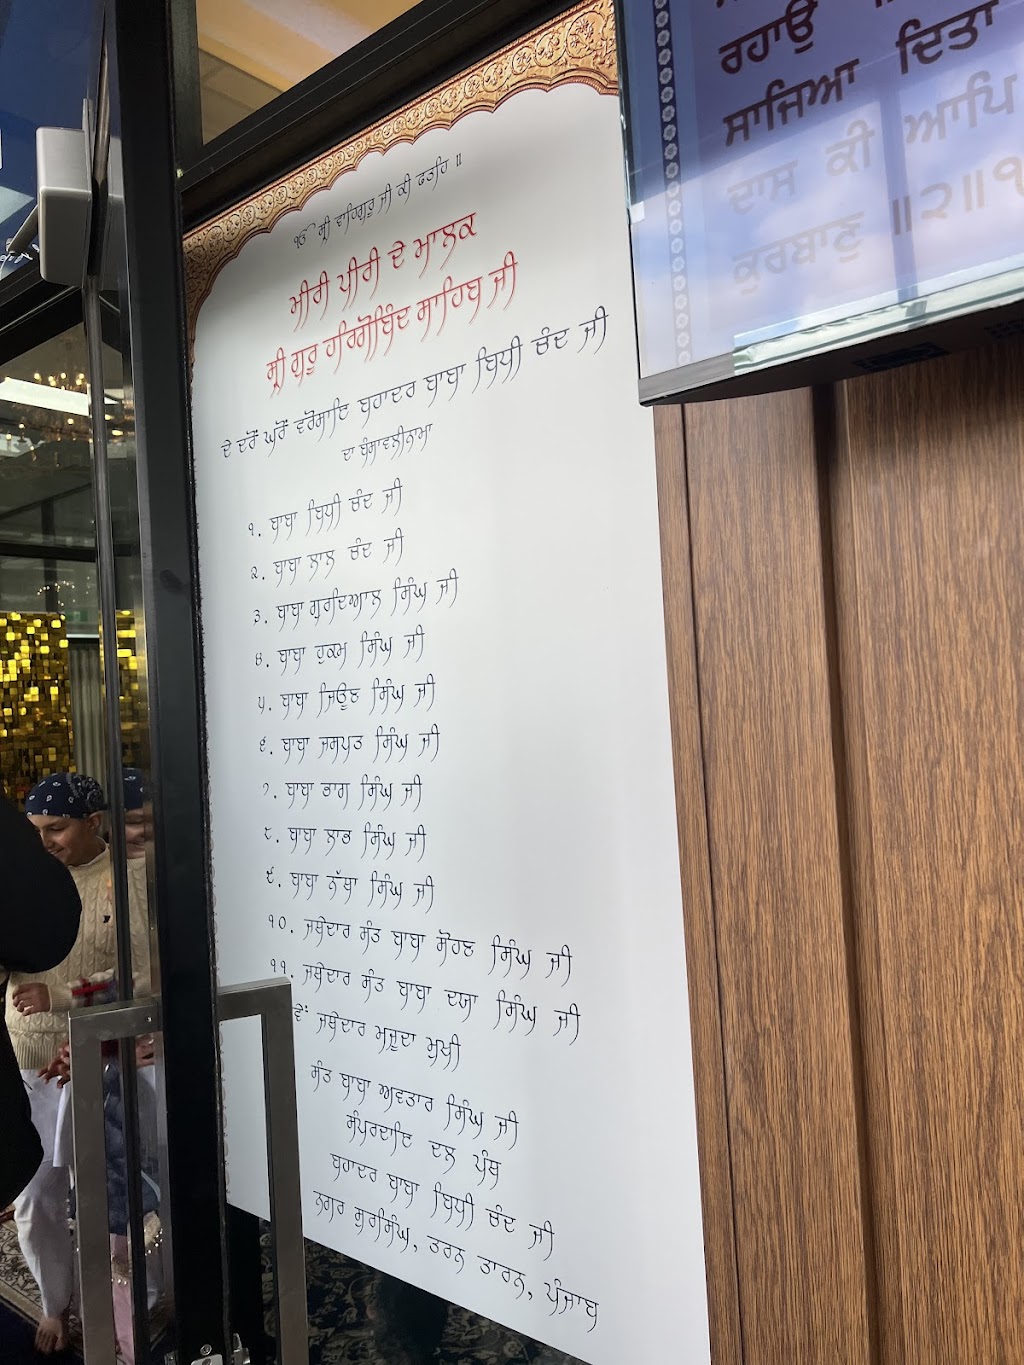 ੴ ਸ੍ਰੀ ਵਾਹਿਗੁਰੂ ਜੀ ਕੀ ਫਤਹਿ ॥
ਮੀਰੀ ਪੀਰੀ ਦੇ ਮਾਲਕ
ਸ੍ਰੀ ਗੁਰੂ ਹਰਿਗੋਬਿੰਦ ਸਾਹਿਬ ਜੀ
ਦੇ ਦਰੋਂ ਘਰੋਂ ਵਰੋਸਾਇ ਬਹਾਦਰ ਬਾਬਾ ਬਿਧੀ ਚੰਦ ਜੀ
ਦਾ ਬੰਸਾਵਲੀਨਾਮਾ
੧. ਬਾਬਾ ਬਿਧੀ ਚੰਦ ਜੀ
੨. ਬਾਬਾ ਲਾਲ ਚੰਦ ਜੀ
੩. ਬਾਬਾ ਗੁਰਦਿਆਲ ਸਿੰਘ ਜੀ
੪. ਬਾਬਾ ਹੁਕਮ ਸਿੰਘ ਜੀ
੫. ਬਾਬਾ ਜਿਊਣ ਸਿੰਘ ਜੀ
੬. ਬਾਬਾ ਜਸਪਤ ਸਿੰਘ ਜੀ
੭. ਬਾਬਾ ਭਾਗ ਸਿੰਘ ਜੀ
੮. ਬਾਬਾ ਲਾਭ ਸਿੰਘ ਜੀ
੯. ਬਾਬਾ ਨੱਥਾ ਸਿੰਘ ਜੀ
੧੦. ਜਥੇਦਾਰ ਸੰਤ ਬਾਬਾ ਸੋਹਣ ਸਿੰਘ ਜੀ
੧੧. ਜਥੇਦਾਰ ਸੰਤ ਬਾਬਾ ਦਯਾ ਸਿੰਘ ਜੀ
ਵੇਂ ਜਥੇਦਾਰ ਮਜੂਦਾ ਮੁਖੀ
ਸੰਤ ਬਾਬਾ ਅਵਤਾਰ ਸਿੰਘ ਜੀ
ਸੰਪਰਦਾਇ ਦਲ ਪੰਥ
ਬਹਾਦਰ ਬਾਬਾ ਬਿਧੀ ਚੰਦ ਜੀ
ਨਗਰ ਸੁਰਸਿੰਘ, ਤਰਨ ਤਾਰਨ, ਪੰਜਾਬ
ਰਹਾਉ
ਸਾਜਿਆ ਦਿਤਾ
ਦਾਸ ਕੀ ਆਪਿ
ਕੁਰਬਾਣੁ ॥੨॥੧